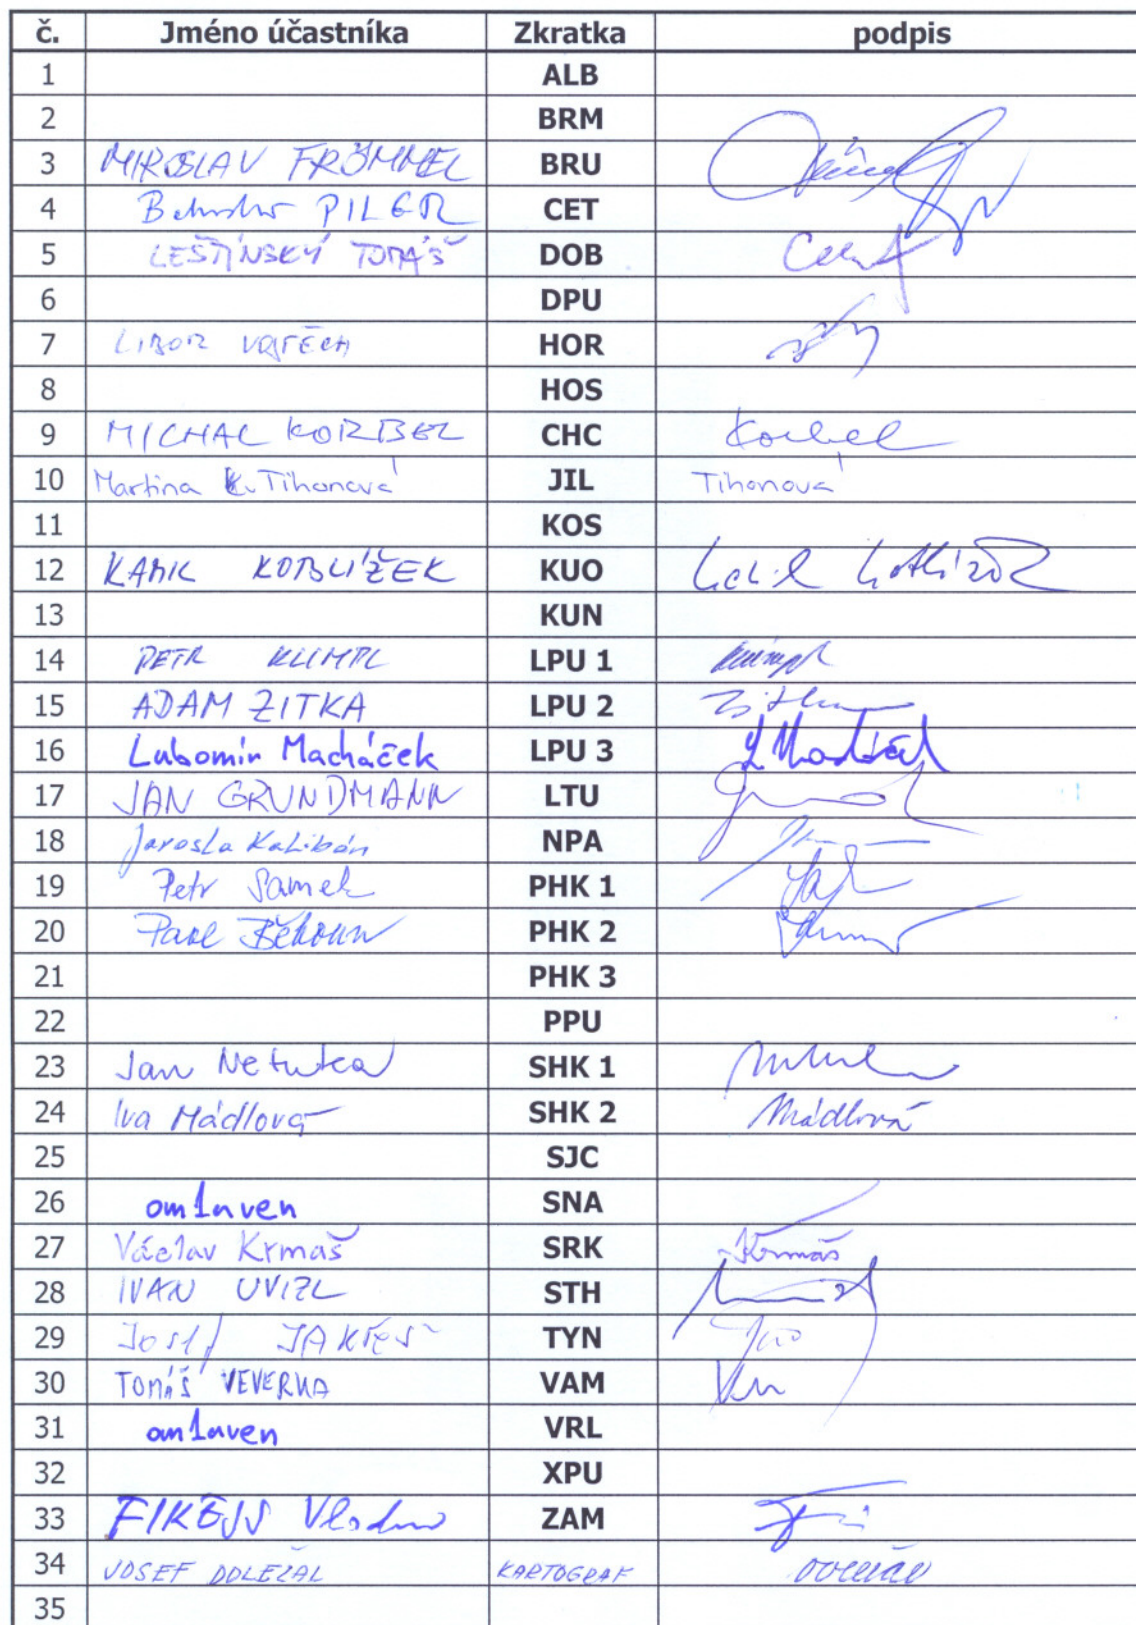 č. Jméno účastníka Zkratka podpis
1 ALB
2 BRM
3 MIROSLAV FRÖMMEL BRU
4 PILGR CET
5 LEŠTÍNSKÝ TOMÁŠ DOB
6 DPU
7 LIBOR VOJTĚCH HOR
8 HOS
9 MICHAL KORBEL CHC Korbel
10 Martina K. Tihonová JIL Tihonová
11 KOS
12 KAMIL KOBLÍŽEK KUO
13 KUN
14 PETR KLIMPL LPU 1 Klimpl
15 ADAM ZITKA LPU 2 Zitka
16 Lubomír Macháček LPU 3 L Macháček
17 JAN GRUNDMANN LTU
18 NPA
19 Petr Samek PHK 1
20 PHK 2
21 PHK 3
22 PPU
23 Jan Netuka SHK 1
24 Iva Mádlová SHK 2 Mádlová
25 SJC
26 omluven SNA
27 Václav Krmaš SRK Krmaš
28 IVAN UVIZL STH
29 Josef TYN
30 TOMÁŠ VEVERKA VAM
31 omluven VRL
32 XPU
33 FIKEJS ZAM
34 JOSEF DOLEŽAL KARTOGRAF
35